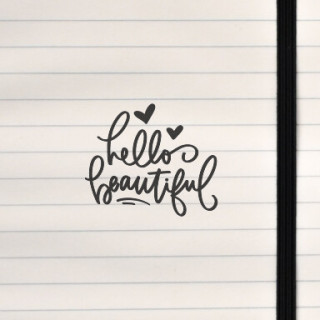 hello
beautiful